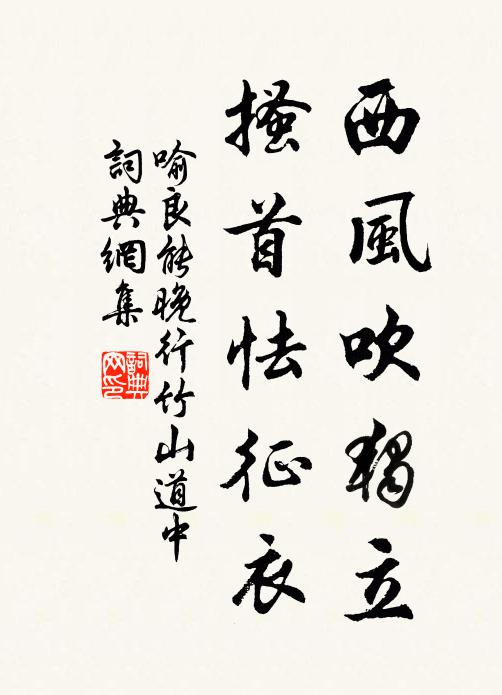 西風吹獨立
搔首怯征衣
喻良能晚行竹山道中
詞典網集
詞典
网印